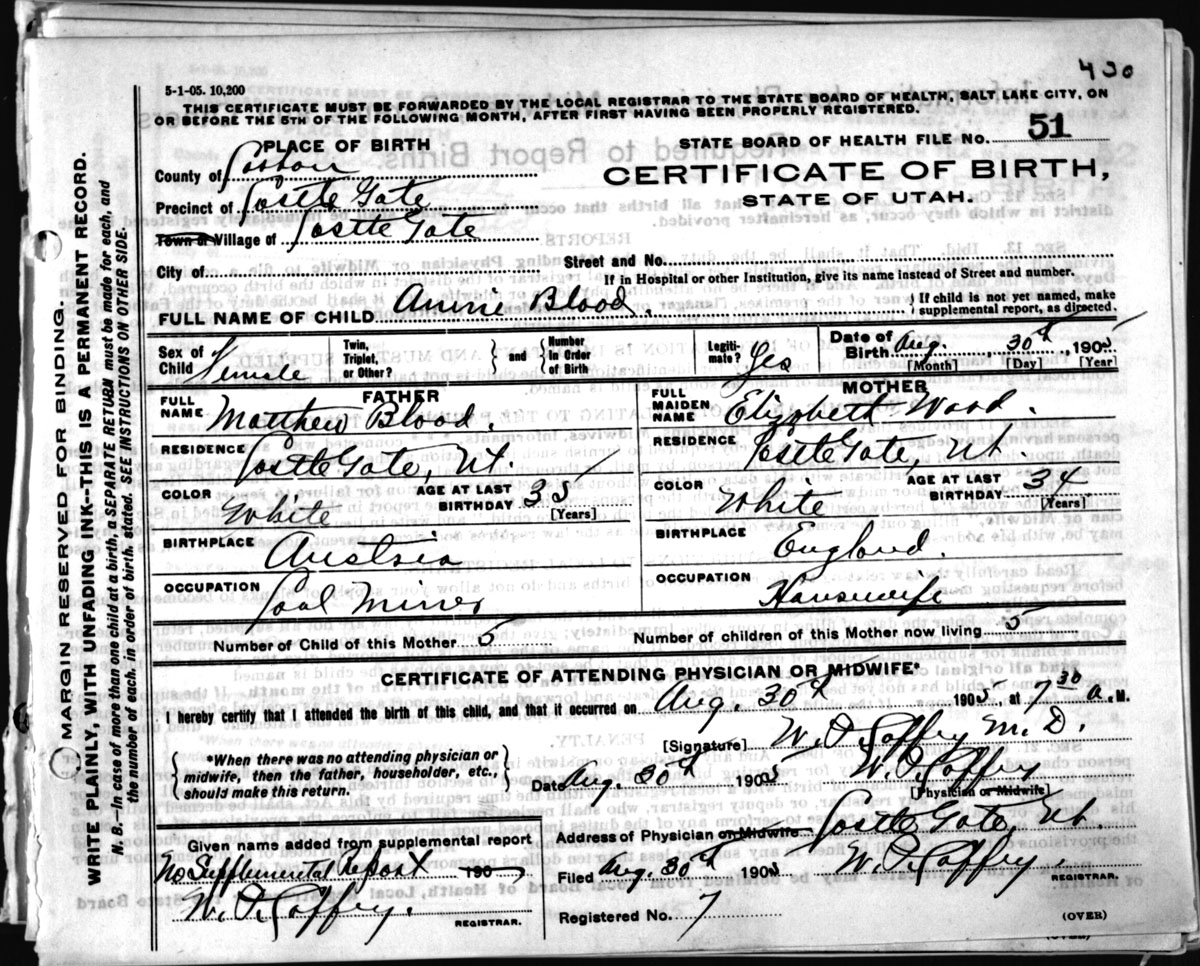 430
5-1-05. 10,200
THIS CERTIFICATE MUST BE FORWARDED BY THE LOCAL REGISTRAR TO THE STATE BOARD OF HEALTH, SALT LAKE CITY, ON
OR BEFORE THE 5TH OF THE FOLLOWING MONTH, AFTER FIRST HAVING BEEN PROPERLY REGISTERED.
PLACE OF BIRTH
County of Carbon
Precinct of Castle Gate
Town or Village of Castle Gate
City of
STATE BOARD OF HEALTH FILE NO. 51
CERTIFICATE OF BIRTH,
STATE OF UTAH.
Street and No.
If in Hospital or other Institution, give its name instead of Street and number.
FULL NAME OF CHILD Annie Blood. } If child is not yet named, make supplemental report, as directed.
Sex of Child Female
Twin, Triplet, or Other? } and { Number in Order of Birth
Legitimate? Yes
Date of Birth Aug. 30th 1905
[Month] [Day] [Year]
FATHER
FULL NAME Matthew Blood.
RESIDENCE Castle Gate, Ut.
COLOR White
AGE AT LAST BIRTHDAY 35 [Years]
BIRTHPLACE Austria
OCCUPATION Coal Miner
MOTHER
FULL MAIDEN NAME Elizabeth Wood.
RESIDENCE Castle Gate, Ut.
COLOR White
AGE AT LAST BIRTHDAY 34 [Years]
BIRTHPLACE England.
OCCUPATION Housewife
Number of Child of this Mother 5
Number of children of this Mother now living 5
CERTIFICATE OF ATTENDING PHYSICIAN OR MIDWIFE*
I hereby certify that I attended the birth of this child, and that it occurred on Aug. 30th 1905, at 7 30 a. M.
{ *When there was no attending physician or midwife, then the father, householder, etc., should make this return. }
[Signature] W. P. Caffey M. D.
Date Aug. 30th 1905 W. P. Caffey
[Physician or Midwife]
Address of Physician or Midwife Castle Gate, Ut.
Given name added from supplemental report
No Supplemental Report 190
W. P. Caffey.
REGISTRAR.
Filed Aug. 30th 1905 W. P. Caffey.
REGISTRAR.
Registered No. 7
(OVER)
MARGIN RESERVED FOR BINDING.
WRITE PLAINLY, WITH UNFADING INK--THIS IS A PERMANENT RECORD.
N. B.—In case of more than one child at a birth, a SEPARATE RETURN must be made for each, and
the number of each, in order of birth, stated. SEE INSTRUCTIONS ON OTHER SIDE.